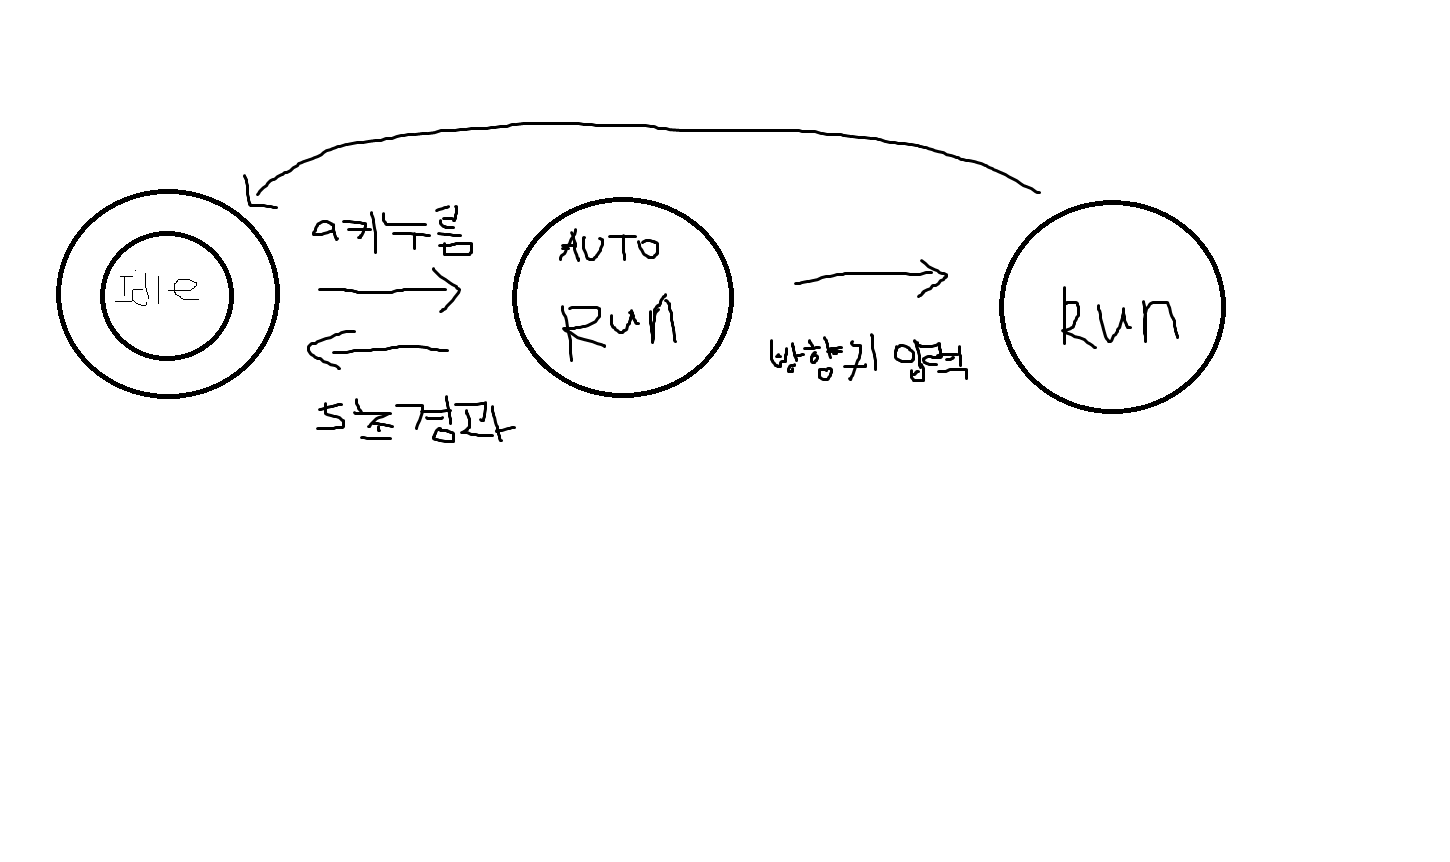 Idle
a키누름
5초경과
AUTO
Run
방향키 입력
Run